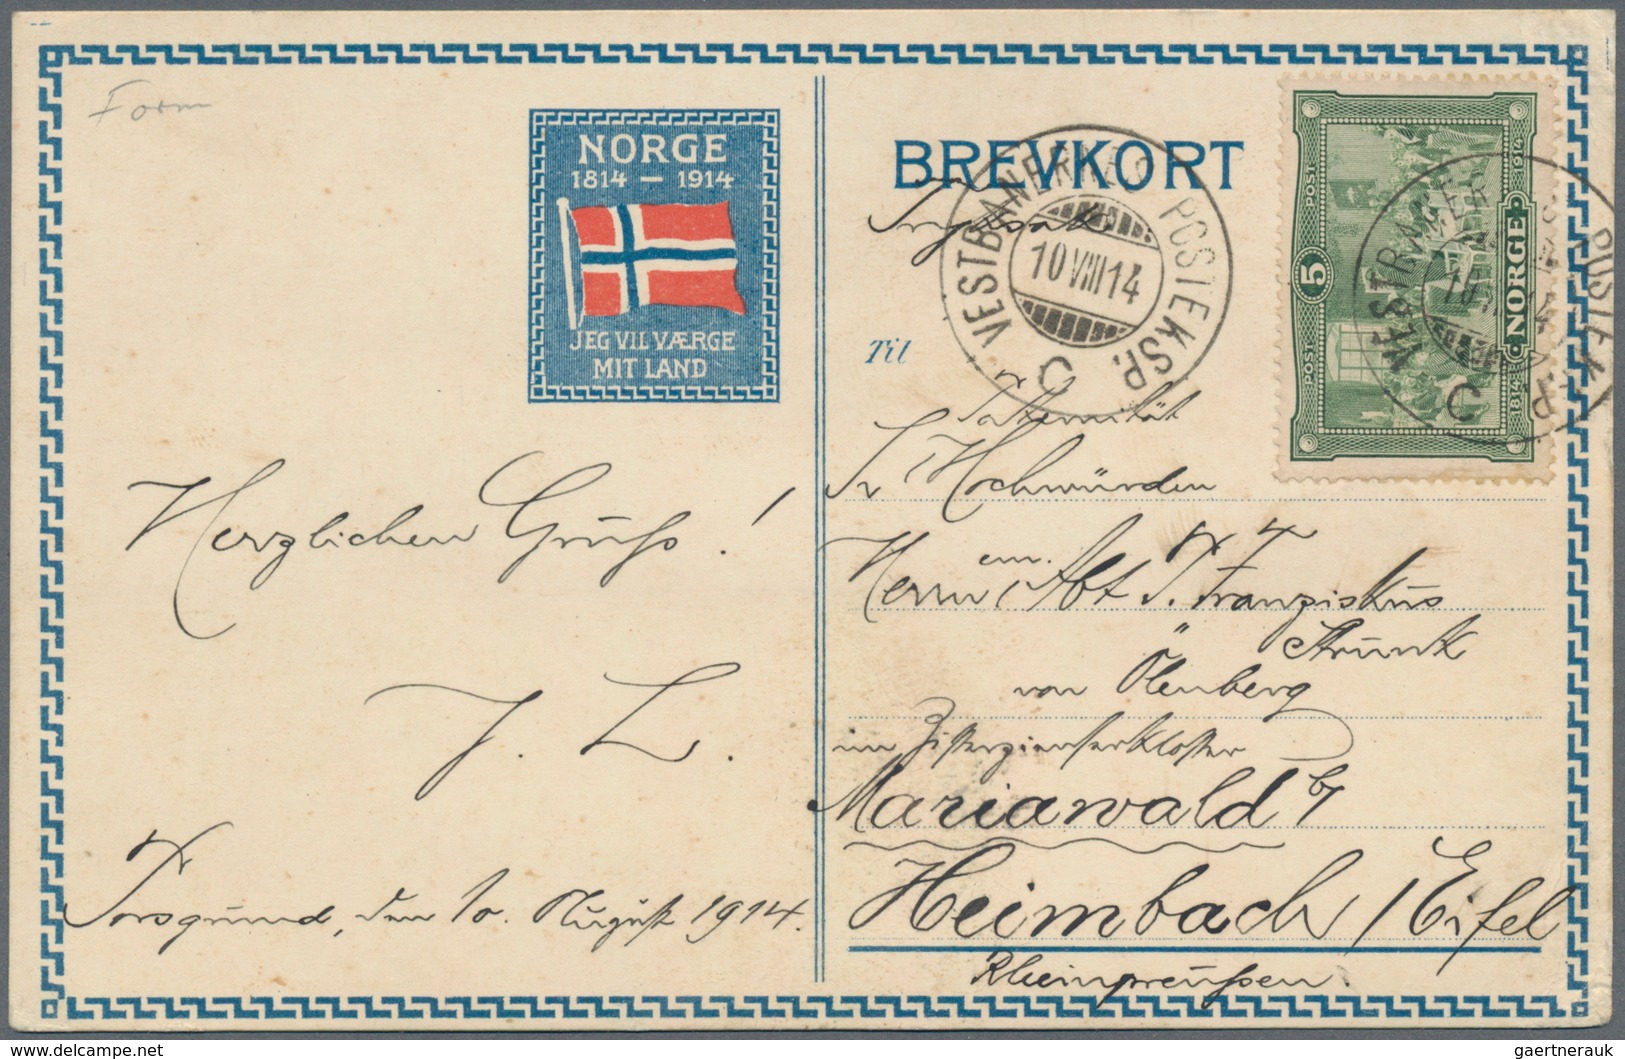 Form
NORGE
1814 — 1914
JEG VIL VÆRGE
MIT LAND
Herzlichen Gruß!
J. L.
Porsgrund, den 10. August 1914.
BREVKORT
Til
Paternität
Sr Hochwürden
Herrn em. Abt P. Franziskus
Strunk
von Ölenberg
im Zisterzienserkloster
Mariawald b/
Heimbach / Eifel
Rheinpreußen.
VESTBANERNES POSTEKSP. C
10 VIII 14
POST 1914
5 NORGE
POST 1814
VESTBANERNES POSTEKSP. C
gaertnerauk